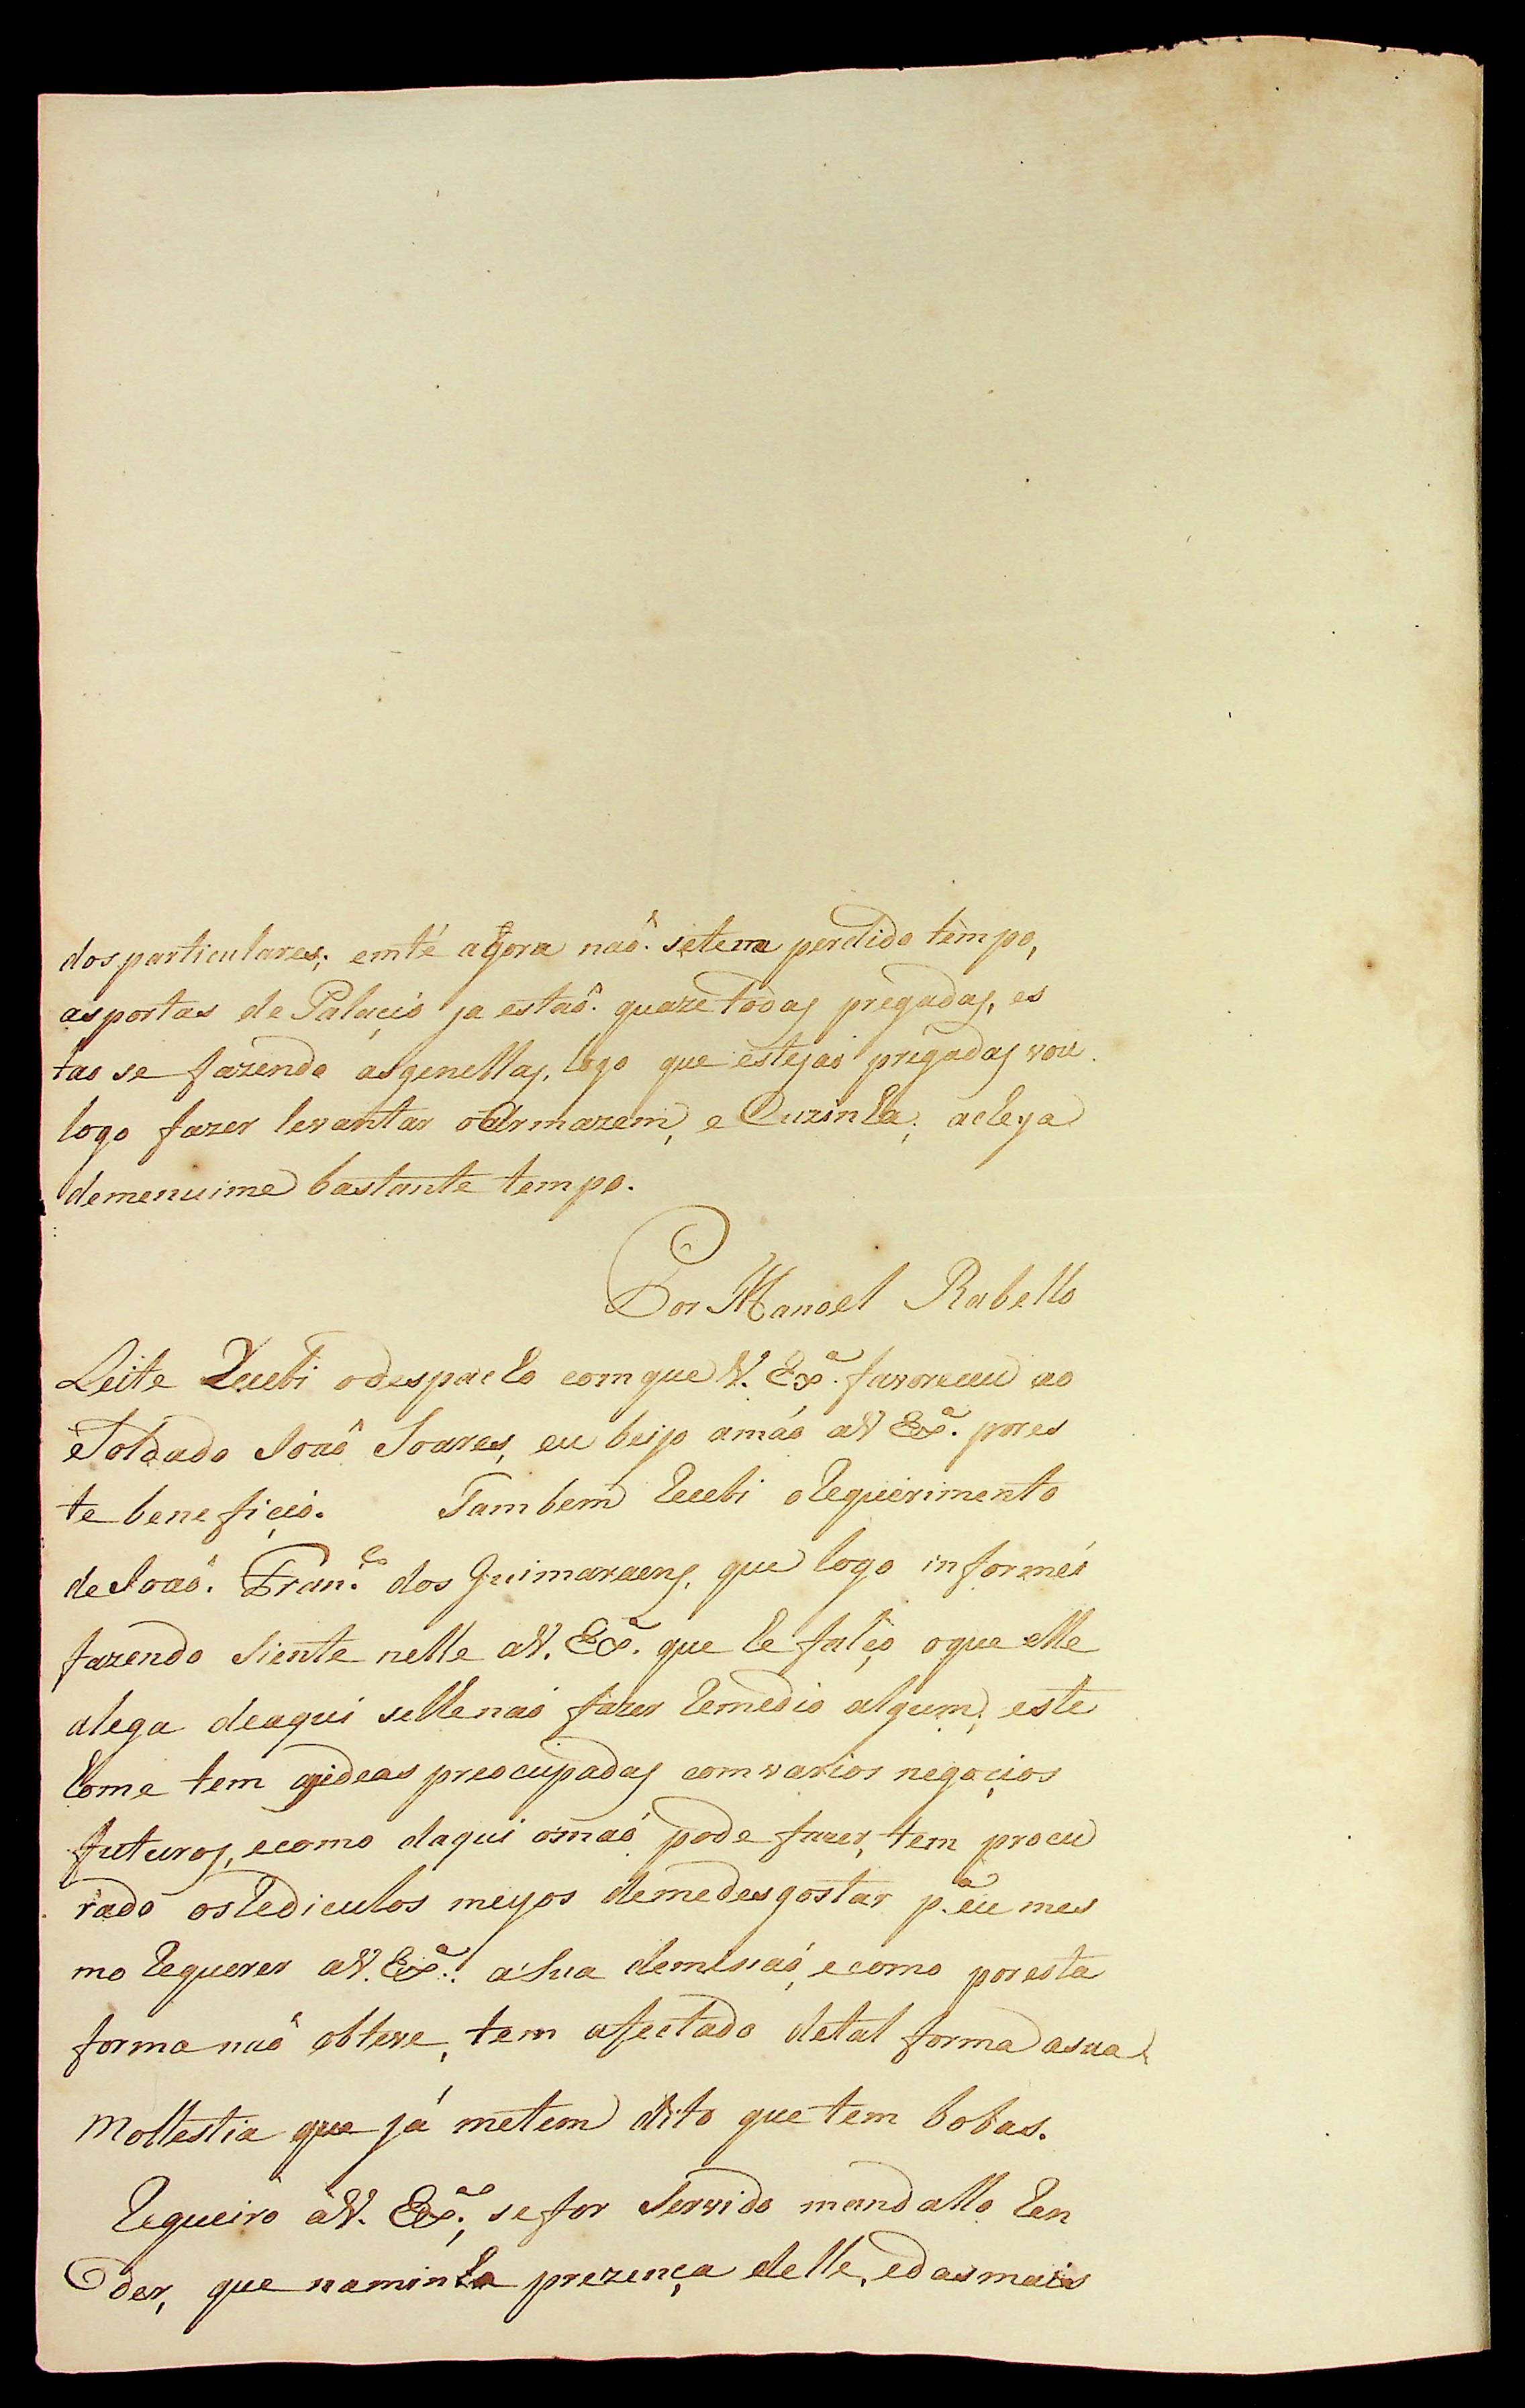 dos particulares; emté agora naõ. setem perdido tempo,
as portas de Palaçio ja estaõ. quaze todas pregadas, es
tao se fazendo asgenellas, logo que estejaó pregadas vou
logo fazer levantar oArmazem, e Cuzinha; achuva
demenuime bastante tempo.
Por Manoel Rabello
Leite Recebi odespacho comque V. Exª. favoreceu ao
Soldado Joaõ Soares, eu beijo amáo aV Exª. pores
te benefiçio. Tambem recebi orequerimento
deJoaõ. Fran.co dos Guimaraens, que logo informéi
fazendo siente nelle aV. Exª. que he falço oque elle
alega deaqui selhenaó fazer remedio algum; este
home tem asideas preocupadas comvarios negoçios
futuros, ecomo daqui onaó pode fazer, tem procu
rado osrediculos meyos demedesgostar p.ª eu mes
mo requerer aV. Exª. asua demissaó, ecomo poresta
forma naõ obteve, tem afectado detal forma asua
mollestia que já metem dito que tem bobas.
Requeiro aV. Exª., sefor servido mandallo ren
der, que naminha prezença delle, edasmais